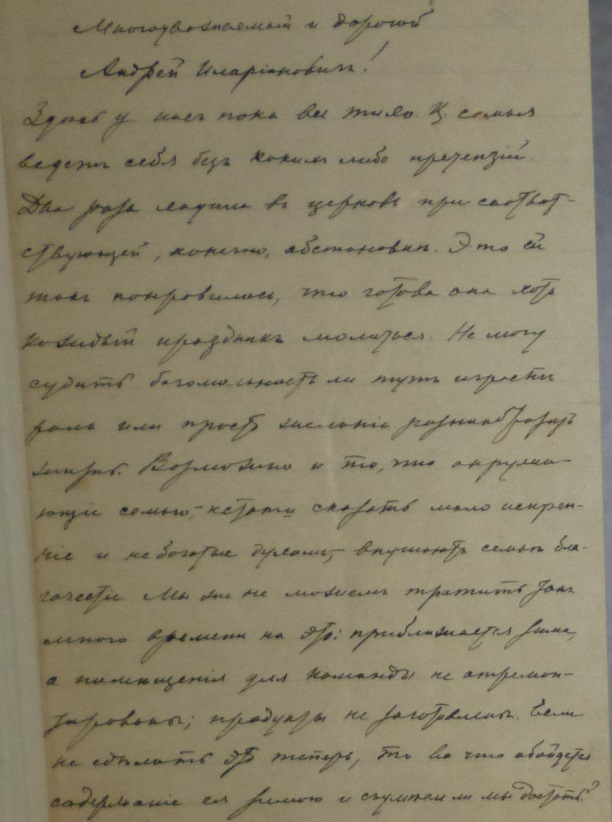 Многоуважаемый и дорогой
Андрей Иларіоновичъ!
Здѣсь у насъ пока все тихо. Ц. семья
ведетъ себя безъ какихъ либо претензій.
Два раза ходила въ церковь при соотвѣт-
ствующей, конечно, обстановкѣ. Это ей
такъ понравилось, что готова она хоть
каждый праздникъ молиться. Не могу
судить богомольность ли тутъ играетъ
роль или просто желаніе разнообразить
жизнь. Возможно и то, что окружа-
ющіе семью,- кстати сказать мало искрен-
ніе и не богатые духомъ,- внушаютъ семьѣ бла-
гочестіе. Мы же не можемъ тратить такъ
много времени на это: приближается зима,
а помѣщенія для команды не отремон-
тированы; продукты не заготовлены. Если
не сдѣлать это теперь, то во что обойдется
содержаніе ея зимою и сумѣемъ ли мы достать?